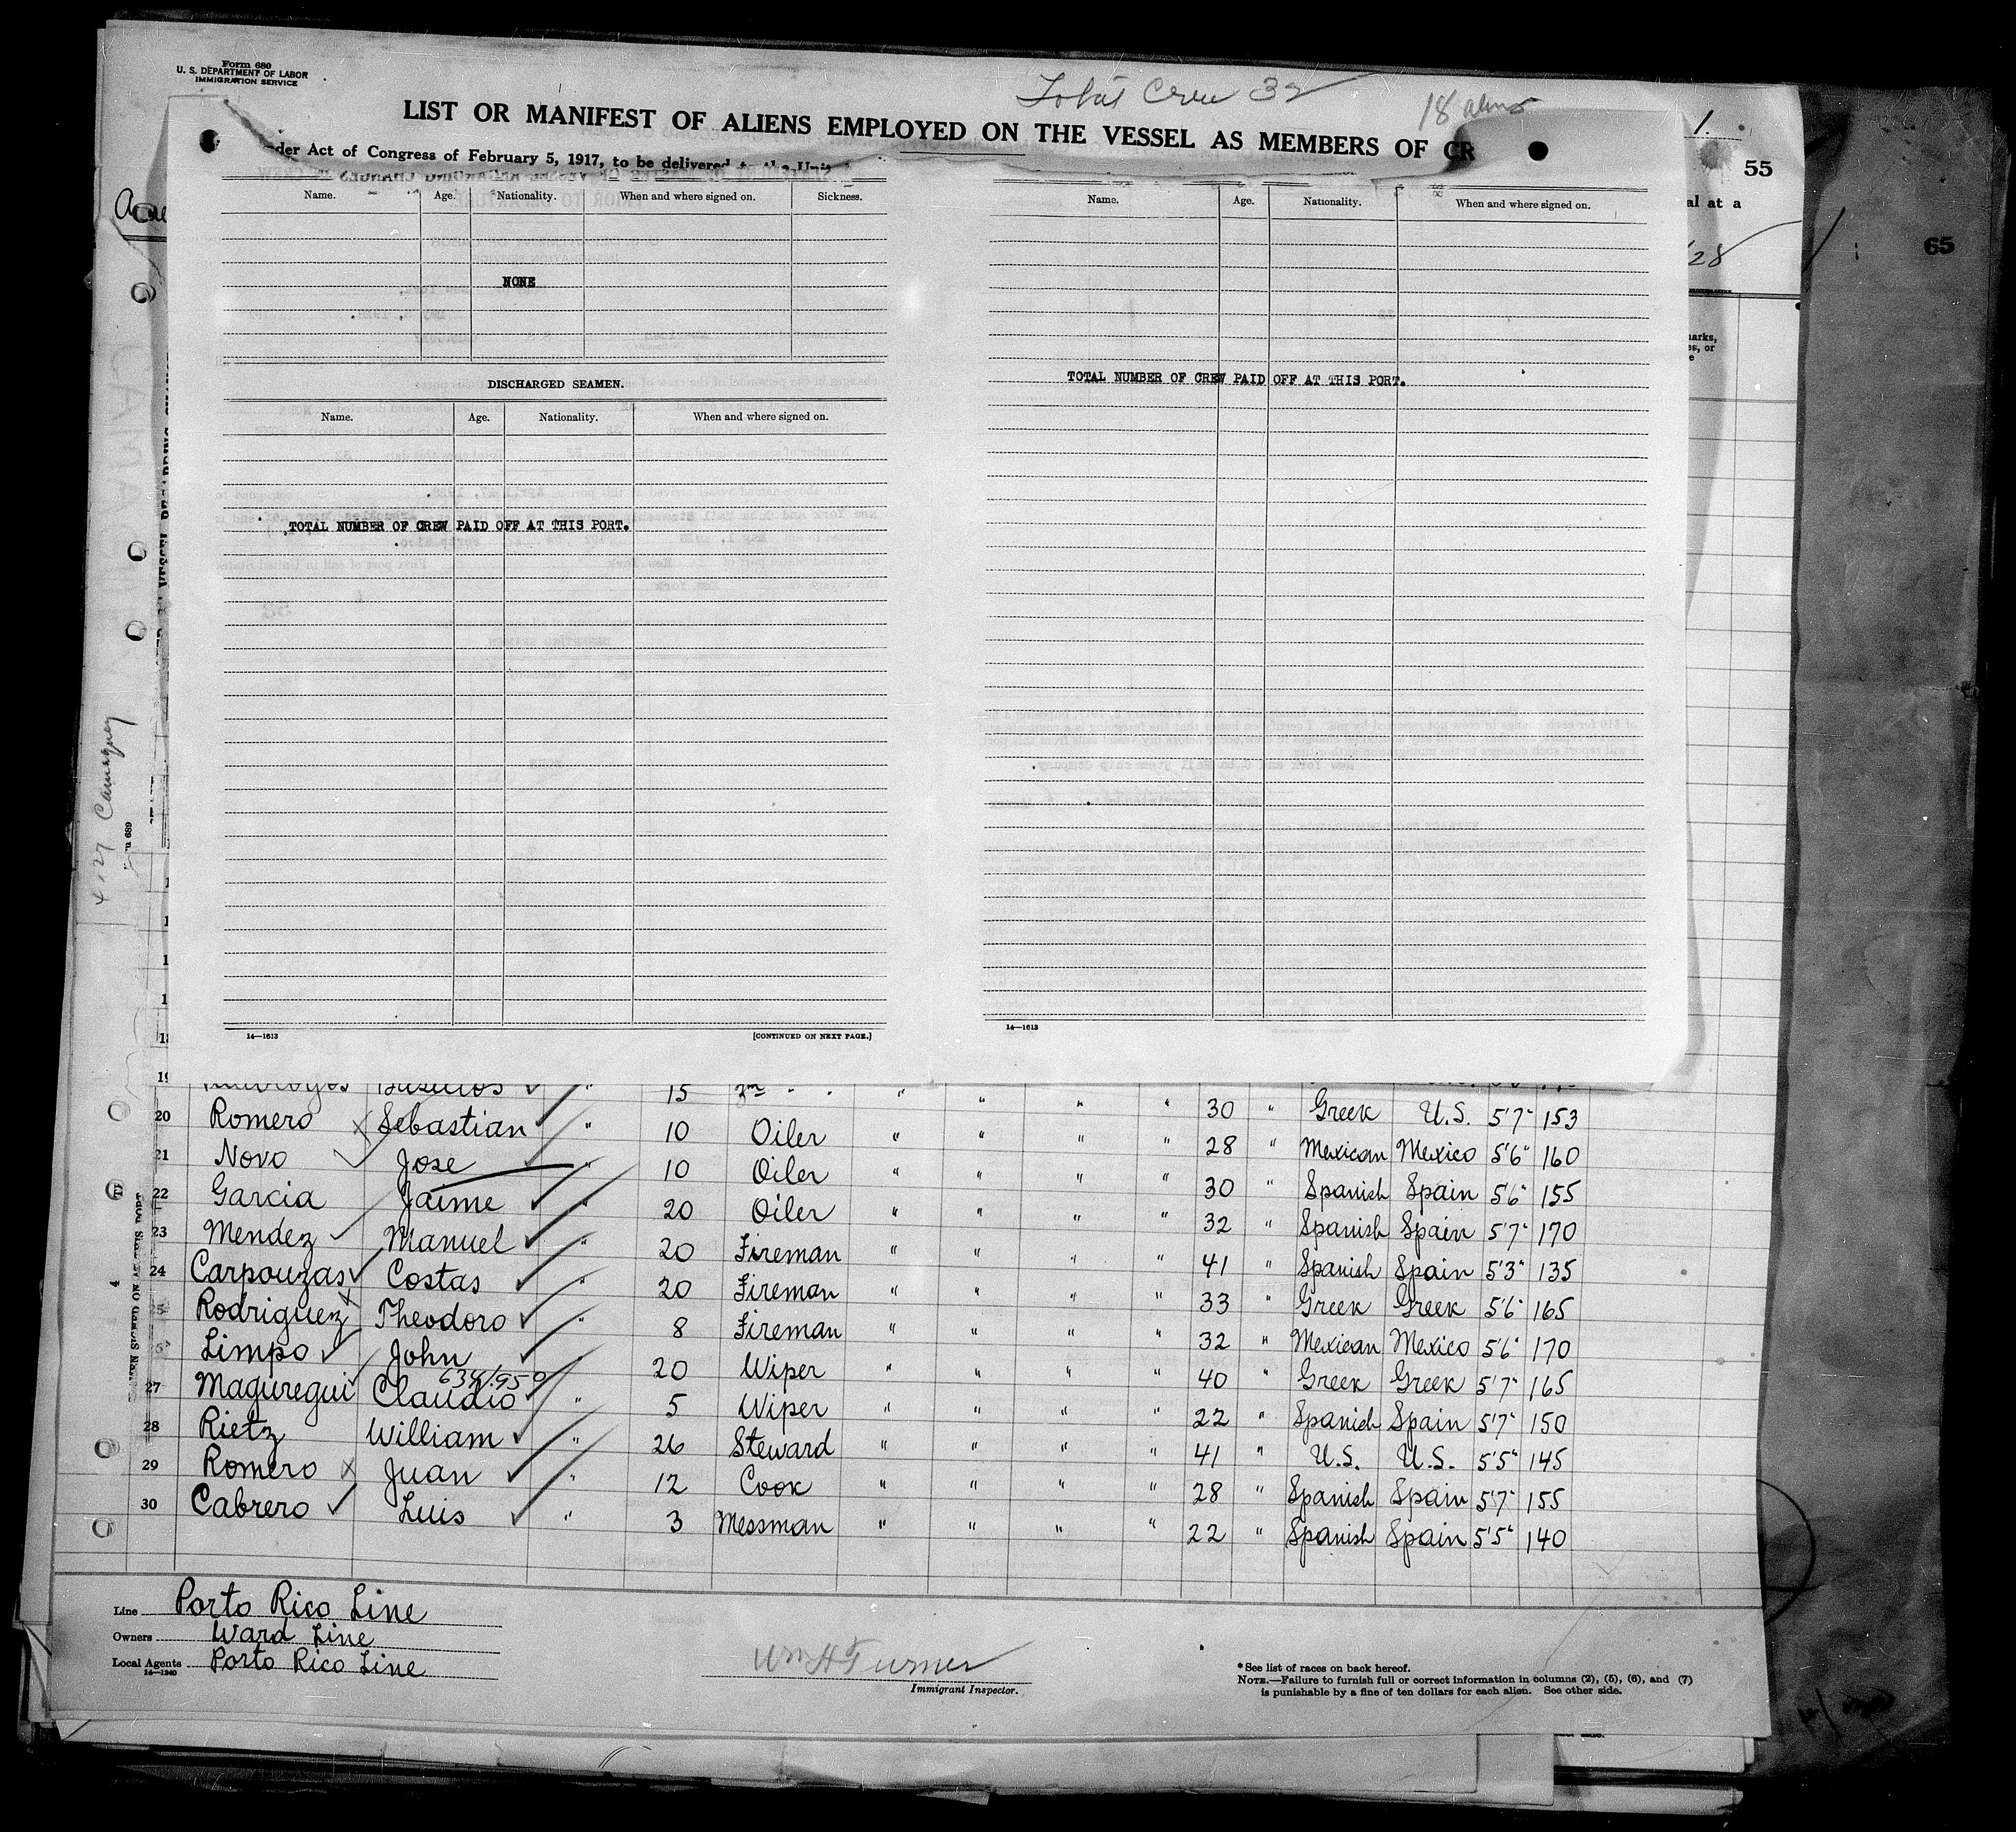 Form 680
U. S. DEPARTMENT OF LABOR
IMMIGRATION SERVICE
Total Crew 32
18 aliens
LIST OR MANIFEST OF ALIENS EMPLOYED ON THE VESSEL AS MEMBERS OF CR
1.
nder Act of Congress of February 5, 1917, to be delivered to the Unit
55
al at a
65
/28
Name. Age. Nationality. When and where signed on. Sickness.
NONE
DISCHARGED SEAMEN.
Name. Age. Nationality. When and where signed on.
TOTAL NUMBER OF CREW PAID OFF AT THIS PORT.
14—1613 [CONTINUED ON NEXT PAGE.]
Name. Age. Nationality. When and where signed on.
TOTAL NUMBER OF CREW PAID OFF AT THIS PORT.
14—1613
arks,
es, or
e
4/27 Camaguey
m 689
19 15 " " " " 30 " Greek U.S. 5'7" 153
20 Romero Sebastian " 10 Oiler " " " " 28 " Mexican Mexico 5'6" 160
21 Novo Jose " 10 Oiler " " " " 30 " Spanish Spain 5'6" 155
22 Garcia Jaime " 20 Oiler " " " " 32 " Spanish Spain 5'7" 170
23 Mendez Manuel " 20 Fireman " " " " 41 " Spanish Spain 5'3" 135
24 Carpouzas Costas " 20 Fireman " " " " 33 " Greek Greek 5'6" 165
25 Rodriguez Theodoro " 8 Fireman " " " " 32 " Mexican Mexico 5'6" 170
Limpo John 20 Wiper " " " " 40 " Greek Greek 5'7" 165
27 Maguregui Claudio " 5 Wiper " " " " 22 " Spanish Spain 5'7" 150
28 Rietz William " 26 Steward " " " " 41 " U.S. U.S. 5'5" 145
29 Romero Juan " 12 Cook " " " " 28 " Spanish Spain 5'7" 155
30 Cabrero Luis " 3 Messman " " " " 22 " Spanish Spain 5'5" 140
Line Porto Rico Line
Owners Ward Line
Local Agents Porto Rico Line
14—1240
Wm H Turner
Immigrant Inspector.
*See list of races on back hereof.
NOTE.—Failure to furnish full or correct information in columns (2), (5), (6), and (7)
is punishable by a fine of ten dollars for each alien. See other side.